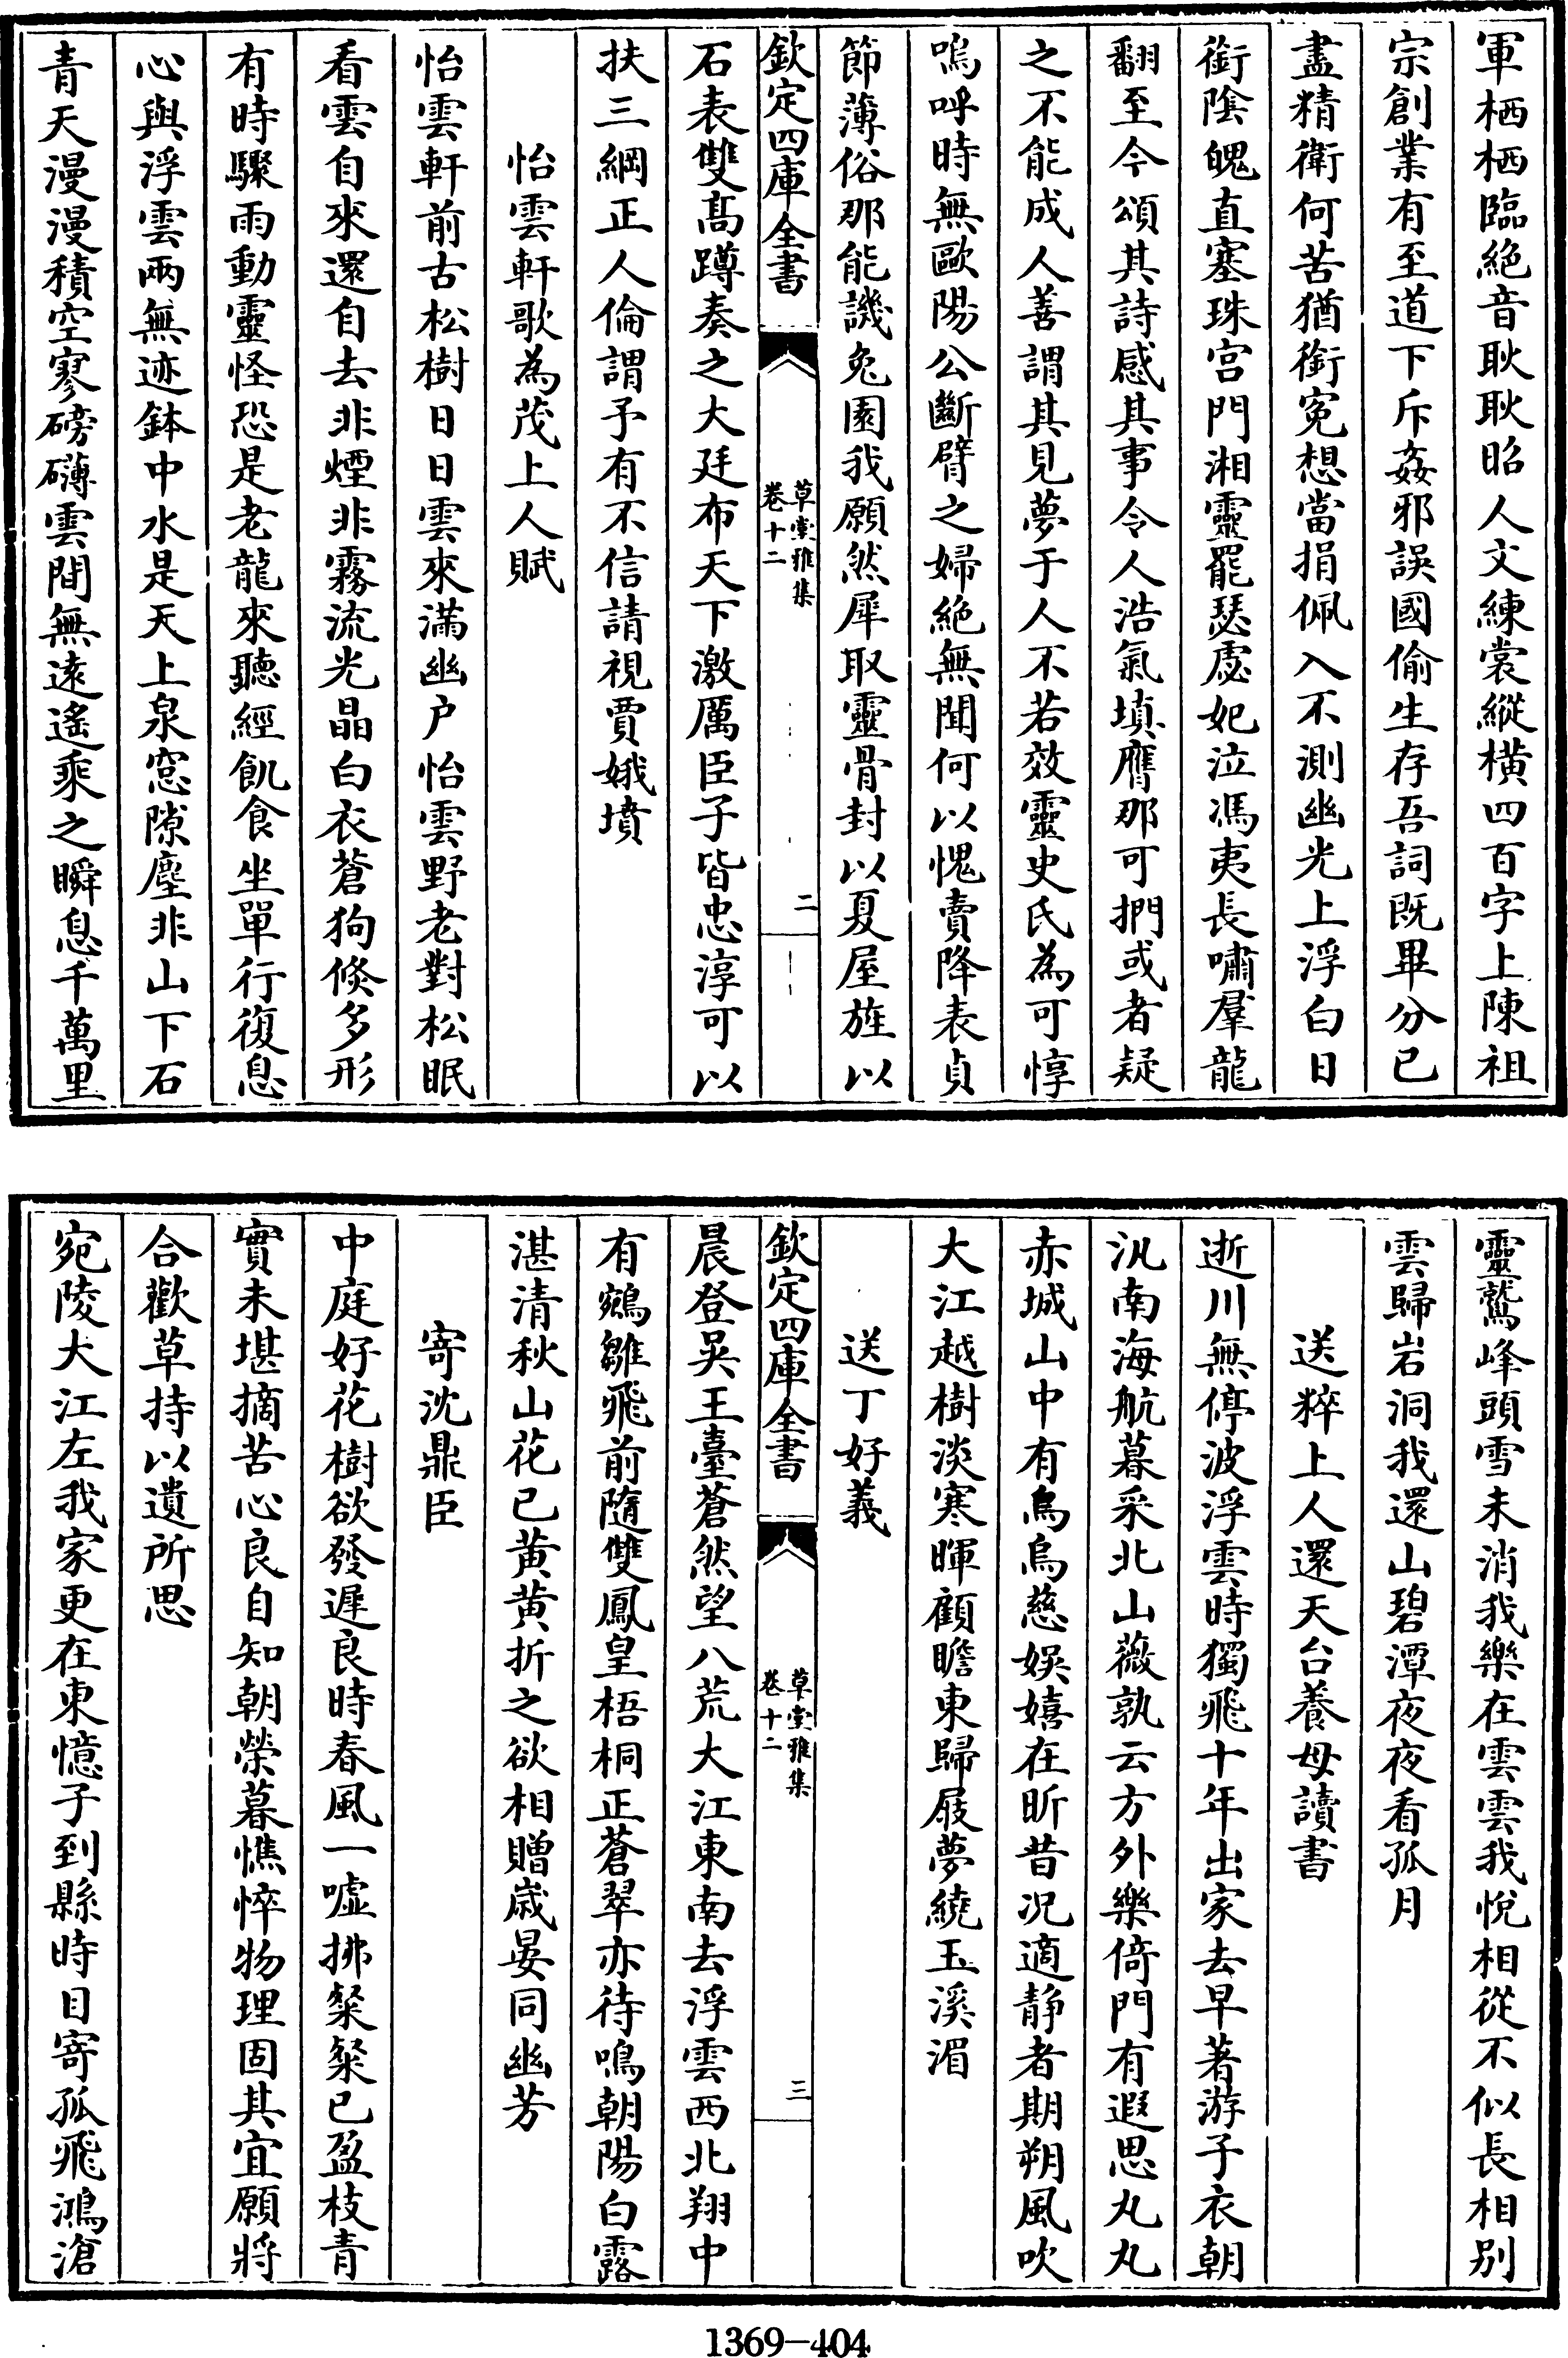 軍栖栖臨絶音耿耿昭人文練裳縱横四百字上陳祖
宗創業有至道下斥姦邪誤國偷生存吾詞既畢分已
盡精衛何苦猶銜寃想當捐佩入不測幽光上浮白日
銜隂魄直塞珠宫門湘靈罷瑟虙妃泣馮夷長嘯羣龍
翻至今頌其詩感其事令人浩氣填膺那可捫或者疑
之不能成人善謂其見夢于人不若效靈史氏為可惇
嗚呼時無歐陽公斷臂之婦絶無聞何以愧賣降表貞
節薄俗那能譏兔園我願然犀取靈骨封以夏屋旌以
欽定四庫全書
草堂雅集
卷十二
二
石表雙髙蹲奏之大廷布天下激厲臣子皆忠淳可以
扶三綱正人倫謂予有不信請視賈娥墳
怡雲軒歌為茂上人賦
怡雲軒前古松樹日日雲來滿幽户怡雲野老對松眠
看雲自來還自去非煙非霧流光晶白衣蒼狗倐多形
有時驟雨動靈怪恐是老龍來聽經飢食坐單行復息
心與浮雲兩無迹鉢中水是天上泉窓隙塵非山下石
青天漫漫積空寥磅礴雲間無逺遙乘之瞬息千萬里
靈鷲峰頭雪未消我樂在雲雲我悦相從不似長相别
雲歸岩洞我還山碧潭夜夜看孤月
送粹上人還天台養母讀書
逝川無停波浮雲時獨飛十年出家去早著游子衣朝
汎南海航暮采北山薇孰云方外樂倚門有遐思丸丸
赤城山中有烏烏慈娛嬉在昕昔况適静者期朔風吹
大江越樹淡寒暉顧瞻東歸屐夢繞玉溪湄
送丁好義
欽定四庫全書
草堂雅集
卷十二
三
晨登吴王臺蒼然望八荒大江東南去浮雲西北翔中
有鵷雛飛前隨雙鳳皇梧桐正蒼翠亦待鳴朝陽白露
湛清秋山花已黄黄折之欲相贈嵗晏同幽芳
寄沈鼎臣
中庭好花樹欲發遲良時春風一噓拂粲粲已盈枝青
實未堪摘苦心良自知朝榮暮憔悴物理固其宜願將
合歡草持以遺所思
宛陵大江左我家更在東憶子到縣時目寄孤飛鴻滄
1369-404